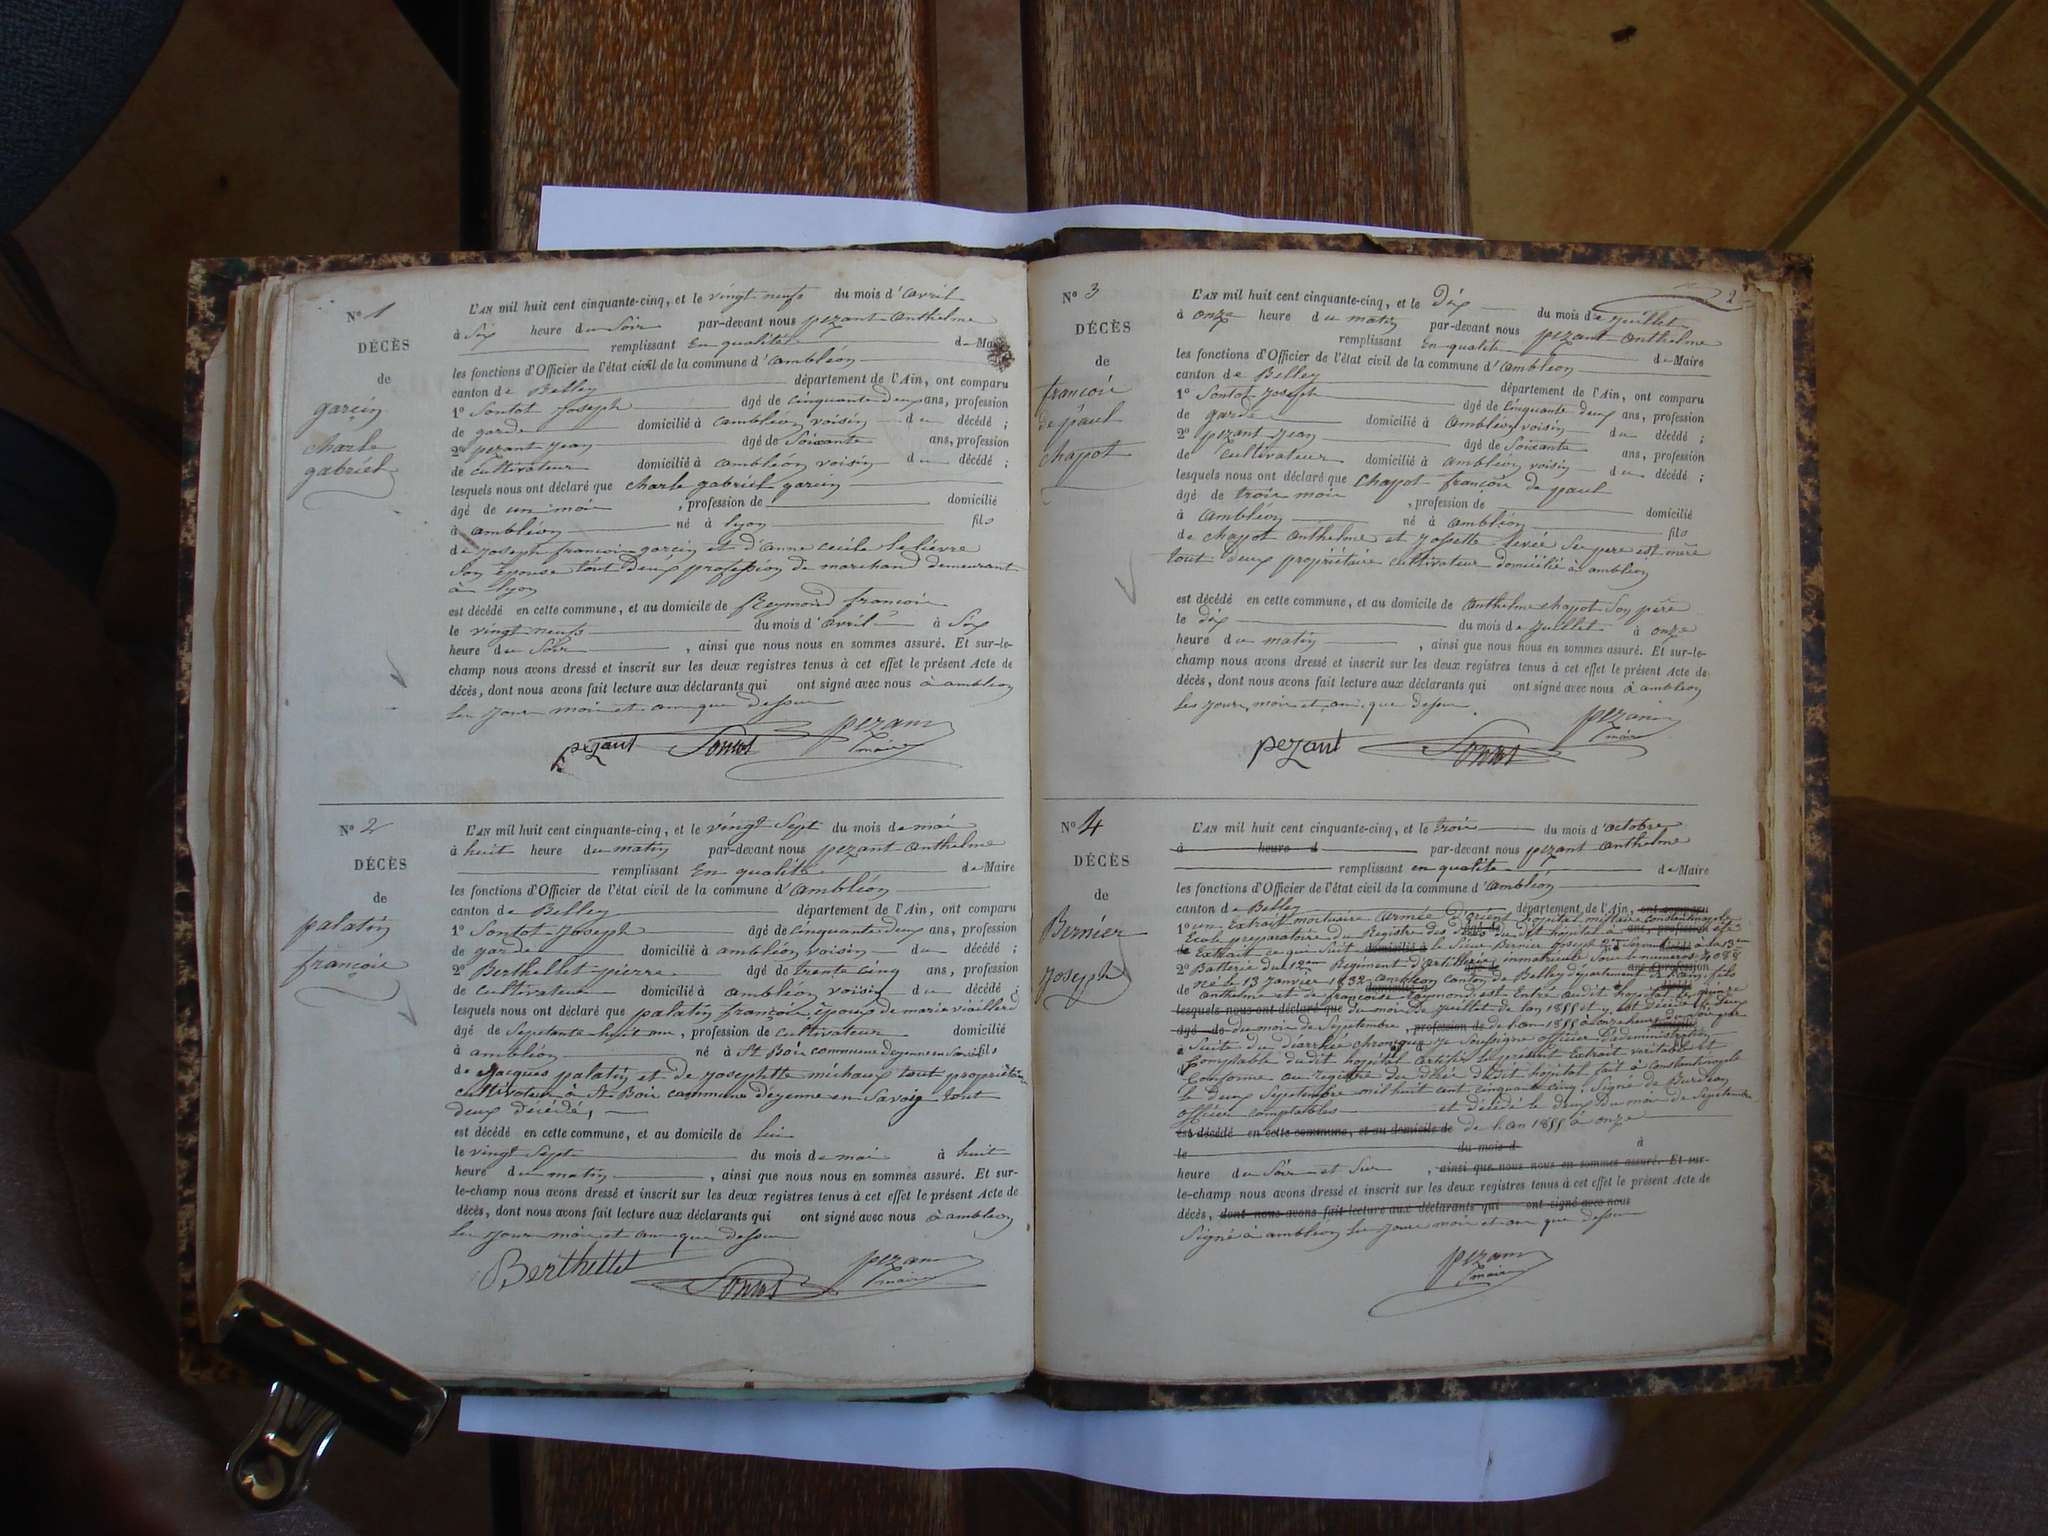 N° 1
DÉCÈS
de
garcin
charle
gabriel
L'AN mil huit cent cinquante-cinq, et le vingt neufs du mois d'avril
à Six heure du Soir par-devant nous pezant anthelme
remplissant En qualité de Ma
les fonctions d'Officier de l'état civil de la commune d'ambléon
canton de Belley département de l'Ain, ont comparu
1° Sontot Joseph âgé de cinquante deux ans, profession
de garde domicilié à ambléon voisin du décédé ;
2° pezant Jean âgé de Soixante ans, profession
de cultivateur domicilié à ambléon voisin du décédé ;
lesquels nous ont déclaré que charle gabriel garcin
âgé de un moi , profession de domicilié
à ambléon né à lyon fils
de Joseph francoi garcin et d'anne cecile lelièvre
Son Epouse tout deux profession de marchand demeurant
à lyon
est décédé en cette commune, et au domicile de Reymond francoi
le vingt neufs du mois d'avril à Six
heure du Soir , ainsi que nous nous en sommes assuré. Et sur-le-
champ nous avons dressé et inscrit sur les deux registres tenus à cet effet le présent Acte de
décès, dont nous avons fait lecture aux déclarants qui ont signé avec nous à ambleon
les jour moi et an que dessu
pezant Sontot pezant
maire
N° 2
DÉCÈS
de
palatin
francoi
L'AN mil huit cent cinquante-cinq, et le vingt Sept du mois de mai
à huit heure du matin par-devant nous pezant anthelme
remplissant En qualité de Maire
les fonctions d'Officier de l'état civil de la commune d'ambléon
canton de Belley département de l'Ain, ont comparu
1° Sontot Joseph âgé de cinquante deux ans, profession
de garde domicilié à ambléon voisin du décédé ;
2° Berthellet pierre âgé de trente cinq ans, profession
de cultivateur domicilié à ambléon voisin du décédé ;
lesquels nous ont déclaré que palatin francoi, époux de marie viaillerd
âgé de Septante huit ans, profession de cultivateur domicilié
à ambléon né à St Boi commune dyenne en Savoi fils
de Jacques palatin et de Josephette michaux tout propriétaire
cultivateur à St Boi commune d'éyenne en Savoie tout
deux décédé,
est décédé en cette commune, et au domicile de lui
le vingt Sept du mois de mai à huit
heure du matin , ainsi que nous nous en sommes assuré. Et sur-
le-champ nous avons dressé et inscrit sur les deux registres tenus à cet effet le présent Acte de
décès, dont nous avons fait lecture aux déclarants qui ont signé avec nous à ambleon
les jour moi et an que dessu
Berthellet Sontot pezant
maire
2
N° 3
DÉCÈS
de
francoi
de paul
chapot
L'AN mil huit cent cinquante-cinq, et le dix du mois de juillet
à onze heure du matin par-devant nous pezant anthelme
remplissant En qualité de Maire
les fonctions d'Officier de l'état civil de la commune d'ambléon
canton de Belley département de l'Ain, ont comparu
1° Sontot Joseph âgé de cinquante deux ans, profession
de garde domicilié à ambléon voisin du décédé ;
2° pezant Jean âgé de Soixante ans, profession
de cultivateur domicilié à ambléon voisin du décédé ;
lesquels nous ont déclaré que chapot francoi de paul
âgé de troi moi , profession de domicilié
à ambléon né à ambléon fils
de chapot anthelme et Josette levée Se pere est mère
tout deux propriétaire cultivateur domicilié à ambléon
est décédé en cette commune, et au domicile de anthelme chapot Son père
le dix du mois de juillet à onze
heure du matin , ainsi que nous nous en sommes assuré. Et sur-le-
champ nous avons dressé et inscrit sur les deux registres tenus à cet effet le présent Acte de
décès, dont nous avons fait lecture aux déclarants qui ont signé avec nous à ambleon
les jour, moi et an, que dessu
pezant Sontot pezant
maire
N° 4
DÉCÈS
de
Bernier
Joseph
L'AN mil huit cent cinquante-cinq, et le troi du mois d'octobre
à heure d par-devant nous pezant anthelme
remplissant en qualité de Maire
les fonctions d'Officier de l'état civil de la commune d'ambléon
canton de Belley département de l'Ain, ont comparu
1° un Extrait mortuaire armée d'orient hopital militaire Constantinople
Ecole preparatoire du Registre des décès du dit hopital à été
Extrait ce qui suit le Sieur Bernier Joseph Servant à la 13em
2° Batterie du 12em Regiment d'artillerie immatriculé Sous le numeros 4088
né le 13 Janvier 1832 ambleon canton de Belley departement de l'ain, fils
de anthelme et de francoise Reymond est Entré audit hopital le quinze
lesquels nous ont déclaré que du moi de juillet de lan 1855 et y est décédé le deux
âgé de du moi de Septembre , profession de de l'an 1855 à onze heure du Soir par
Suite de diarrhée chronique Je Soussigné officier d'administration
Comptable du dit hopital certifie le present Extrait veritable et
Conforme au registre des décès du dit hopital fait à Constantinople
le deux Septembre mil huit cent cinquante cinq. Signé de Burdeau
officier comptables et décédé le deux du moi de Septembre
est décédé en cette commune, et au domicile de de l'an 1855 à onze
le du mois d à
heure du Soir et Sur , ainsi que nous nous en sommes assuré. Et sur-
le-champ nous avons dressé et inscrit sur les deux registres tenus à cet effet le présent Acte de
décès, dont nous avons fait lecture aux déclarants qui ont signé avec nous
Signé à ambléon les jour moi et an que dessu
pezant
maire